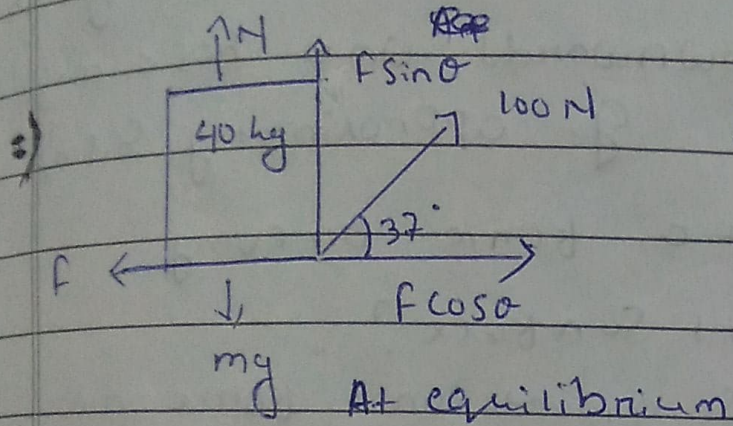 N
F sin θ
100 N
:)
40 kg
37°
f
F cos θ
mg
At equilibrium